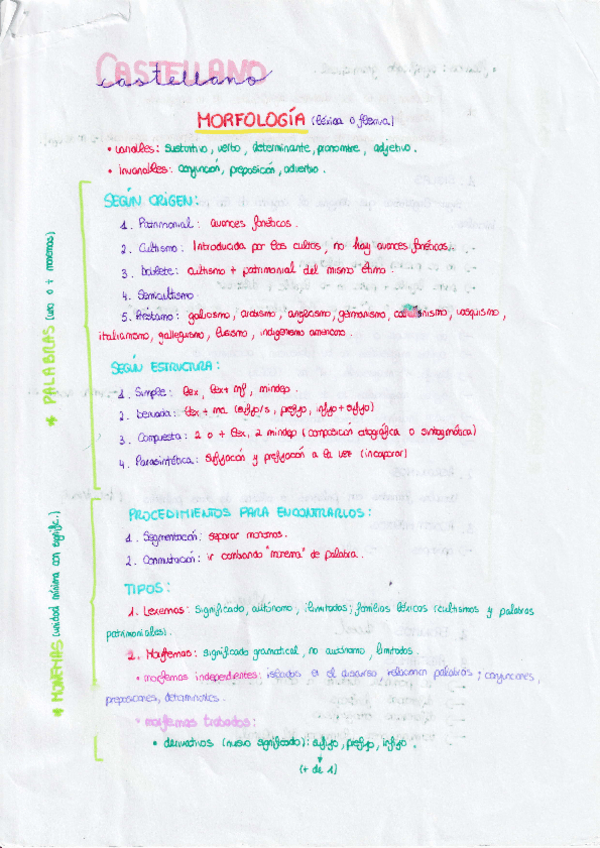 CASTELLANO
castellano
MORFOLOGÍA (léxica o flexiva)
• variables: sustantivo, verbo, determinante, pronombre, adjetivo.
• invariables: conjunción, preposición, adverbio.
* PALABRAS (uno o + monemas)
SEGÚN ORIGEN:
1. Patrimonial: avances fonéticos.
2. Cultismo: Introducida por los cultos, no hay avances fonéticos.
3. Doblete: cultismo + patrimonial del mismo étimo
4. Semicultismo
5. Préstamo: galicismo, arabismo, anglicismo, germanismo, vasquismo,
italianismo, galleguismo, lusismo, indigenismo americano.
SEGÚN ESTRUCTURA:
1. Simple: lex, lex + mf, mindep.
2. Derivada: lex + md (sufijo/s, prefijo, infijo + sufijo)
3. Compuesta: 2 o + lex, 2 mindep (composición ortográfica o sintagmática)
4. Parasintética: sufijación y prefijación a la vez (incaparar)
* MONEMAS (unidad mínima con signific.)
PROCEDIMIENTOS PARA ENCONTRARLOS:
1. Segmentación: separar monemas.
2. Conmutación: ir cambiando "monema" de palabra.
TIPOS:
1. Lexemas: significado, autónomo, ilimitados; familias léxicas (cultismos y palabras
patrimoniales).
2. Morfemas: significado gramatical, no autónomo, limitados.
• morfemas independientes: aislados en el discurso relacionan palabras; conjunciones,
preposiciones, determinantes.
• morfemas trabados:
• derivativos (nuevo significado): sufijo, prefijo, infijo.
(+ de 1)